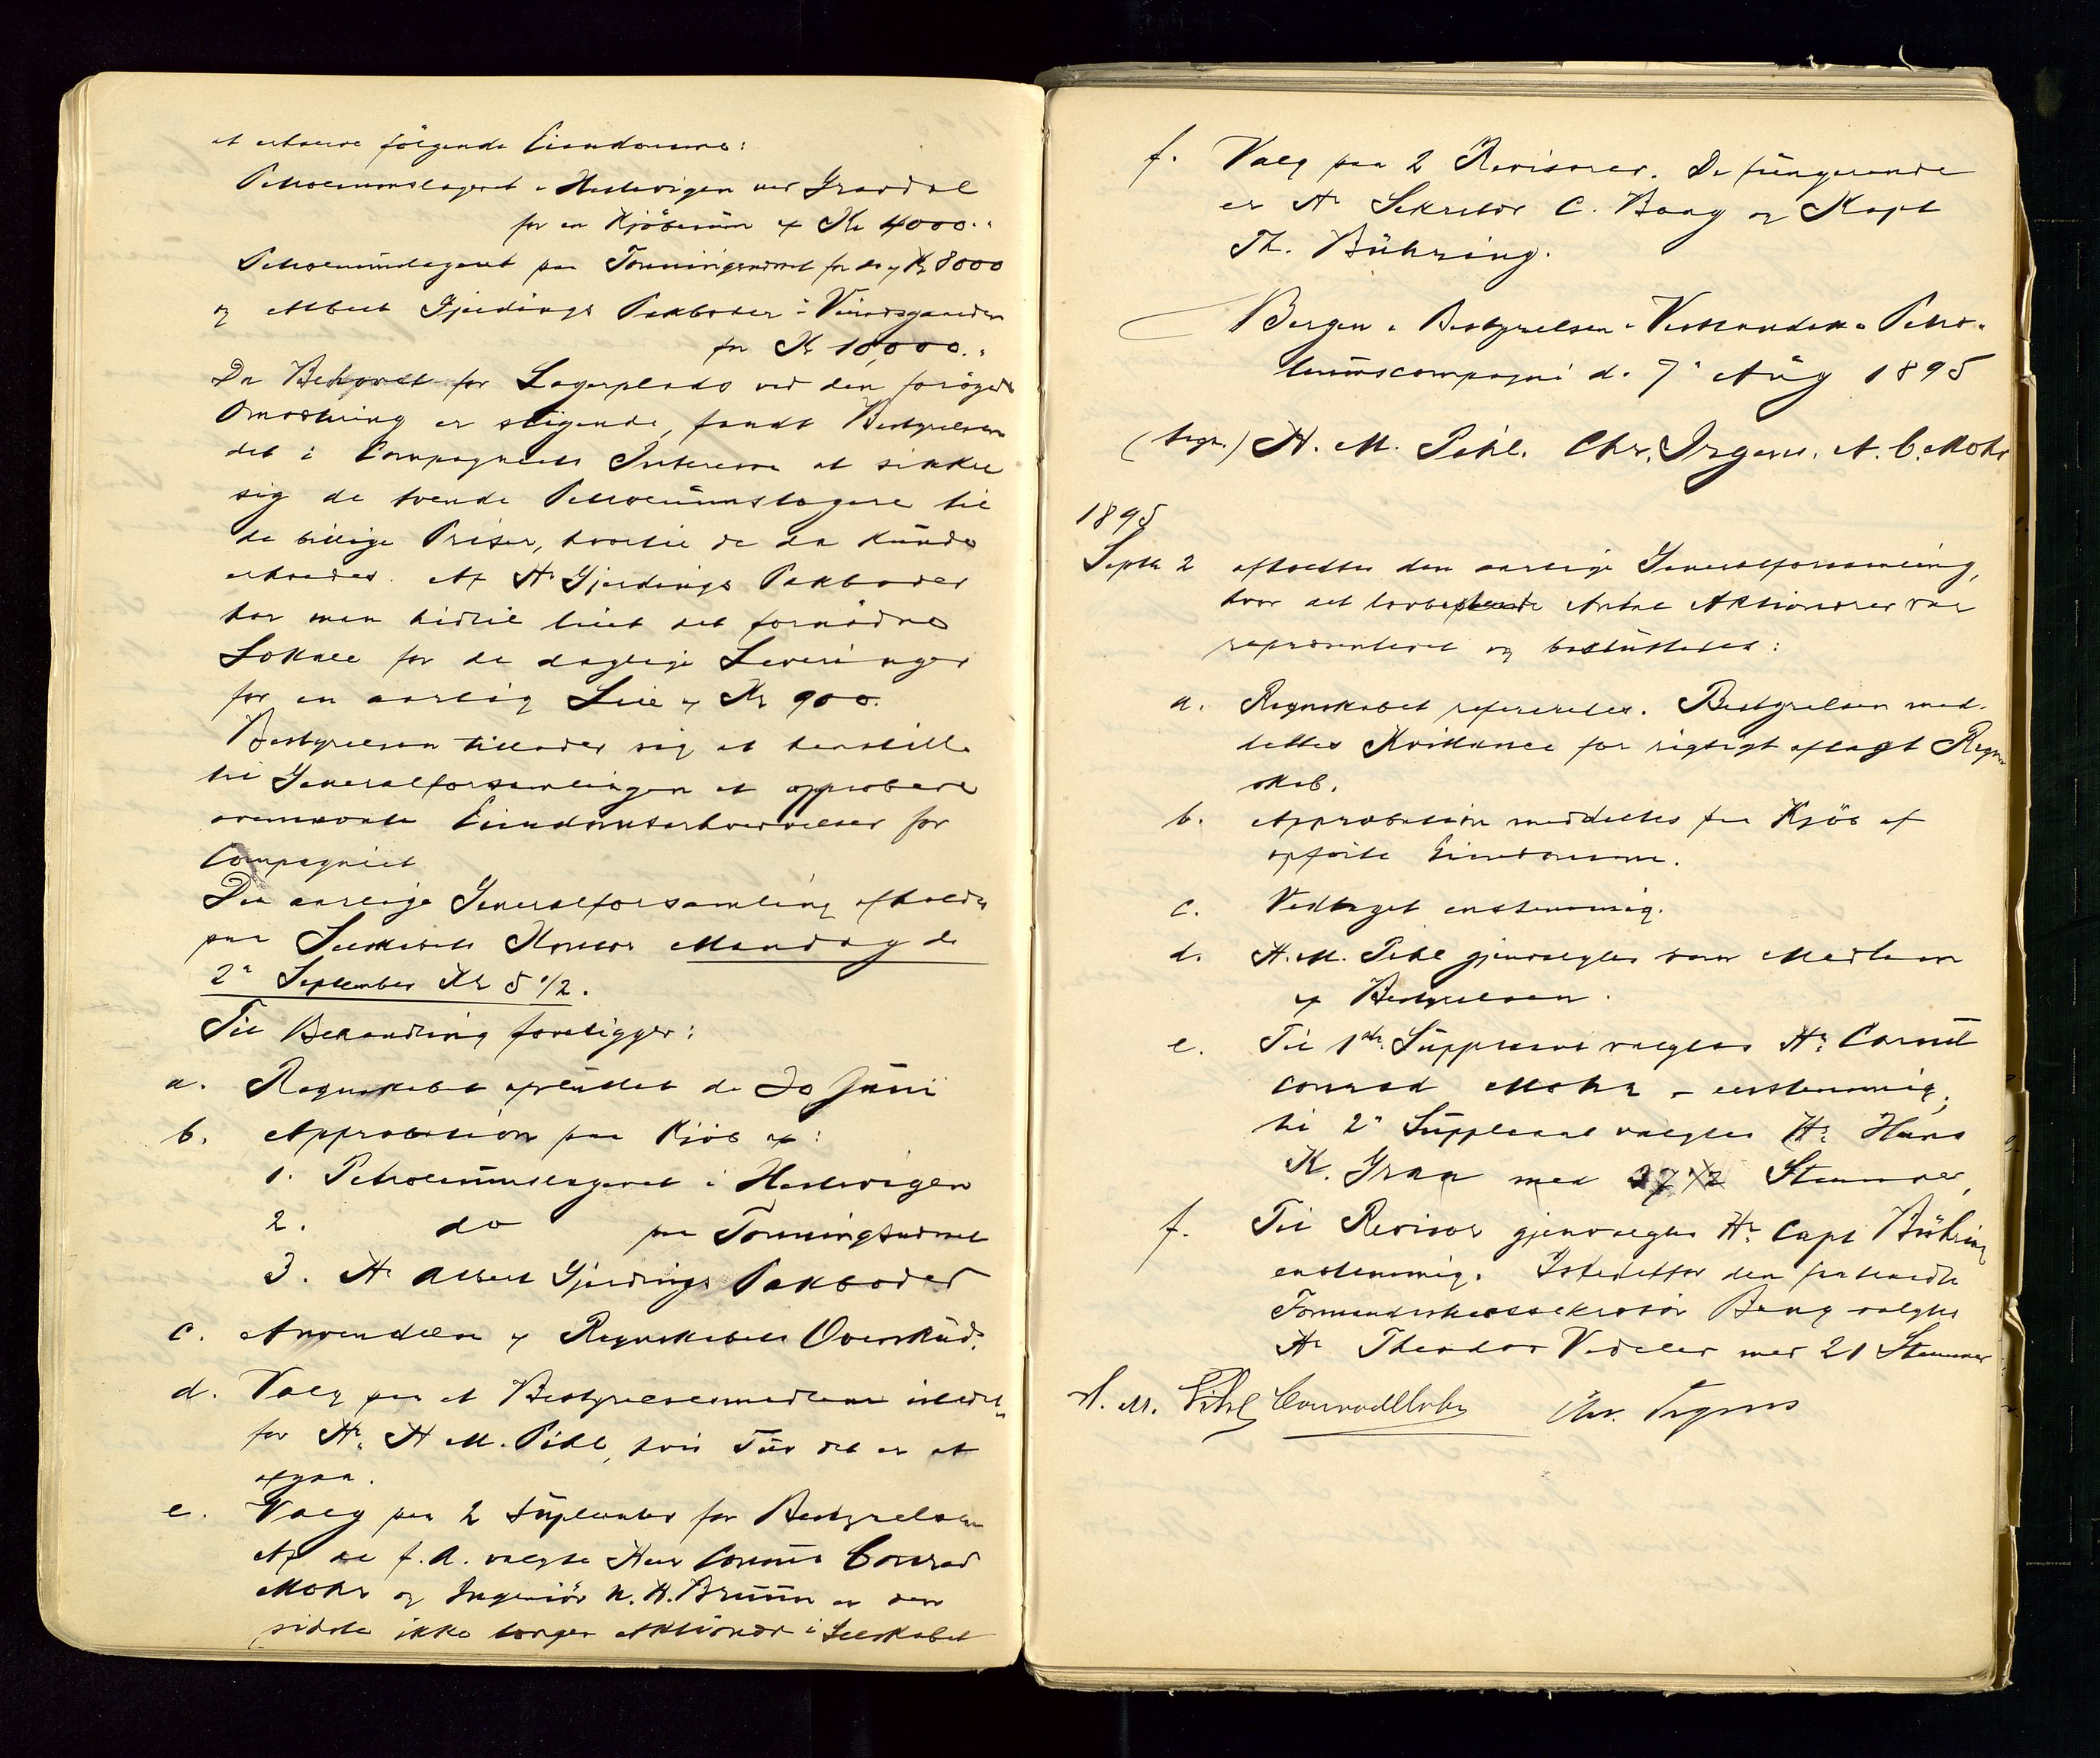 at erhverve følgende Eiendomme:
Petroleumslageret i Hestevigen ved Gravdal
for en Kjöbesum af Kr 4000."
Petroleumslageret paa Tonningsneset for do af Kr 8000
og Albert Gjerdings Pakboder i Vaagsgaarden
for Kr 10,000."
Da Behovet for Lagerplads ved den forögede
Omsætning er stigende, fandt Bestyrelsen
det i Compagniets Interesse at sikkre
sig de tvende Petroleumslagere til
de billige Priser, hvortil de da kunde
erhverves. Af Hr Gjerdings Pakboder
har man hidtil leiet det fornødne
Lokale for de daglige Leveringer
for en aarlig Leie af Kr 900.
Bestyrelsen tillader sig at henstille
til Generalforsamlingen at approbere
ovennævnte Eiendomserhvervelser for
Compagniet
Den aarlige Generalforsamling afholdes
paa Selskabets Kontor Mandag d.
2n September Kl 5 1/2.
Til Behandling foreligger:
a. Regnskabet afsluttet de 30 Juni
b. Approbation paa Kjöb af:
1. Petroleumslageret i Hestevigen
2. do paa Tonningsneset
3. Hr Albert Gjerdings Pakboder
c. Anvendelse af Regnskabets Overskud.
d. Valg paa et Bestyrelsesmedlem istedet„
for Hr. H. M. Pihl, hvis Tur det er at
afgaa.
e. Valg paa 2 Suplenter for Bestyrelsen
Af de f. A. valgte Herr Consul Conrad
Mohr og Ingeniør N. H. Bruun er den
sidste ikke længer Aktionær i Selskabet
f. Valg paa 2 Revisorer. De fungerende
er Hr Sekretær C. Baag og Kapt
Th. Bühring.
Bergen i Bestyrelsen i Vestlandske Petro-
leumscompagni d. 7n Aug 1895
(sign.) H. M. Pihl. Chr. Irgens. A. C. Mohr
1895
Septbr 2 afholdtes den aarlige Generalforsamling,
hvor det lovbestemte Antal Aktionærer var
repræsenteret og besluttedes:
a. Regnskabet refereredes. Bestyrelsen med-
deltes Kvittance for rigtigt aflagt Regn
skab.
b. Approbation meddeltes paa Kjöb af
opførte Eiendomme.
c. Vedtaget enstemmig.
d. H. M. Pihl gjenvalgtes som Medlem
af Bestyrelsen.
e. Til 1ste Suppleant valgtes Hr. Consul
Conrad Mohr – enstemmig,
til 2n Suppleant valgtes Hr. Hans
K. Gran med 27 1/2 Stemmer,
f. Til Revisor gjenvalgtes Hr. Capt Bühring
enstemmig. Istedetfor den fratraadte
Formandskabssekretær Baag valgtes
Hr Theodor Vedeler med 21 Stemmer
H. M. Pihl Conrad Mohr Chr. Irgens